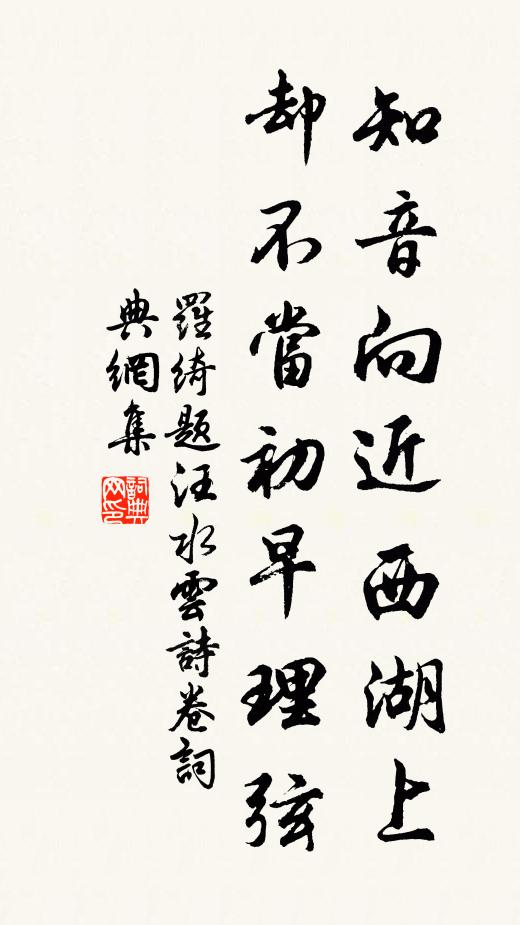 知音向近西湖上
却不當初早理弦
羅綺題汪水雲詩卷詞
典網集
詞典網印